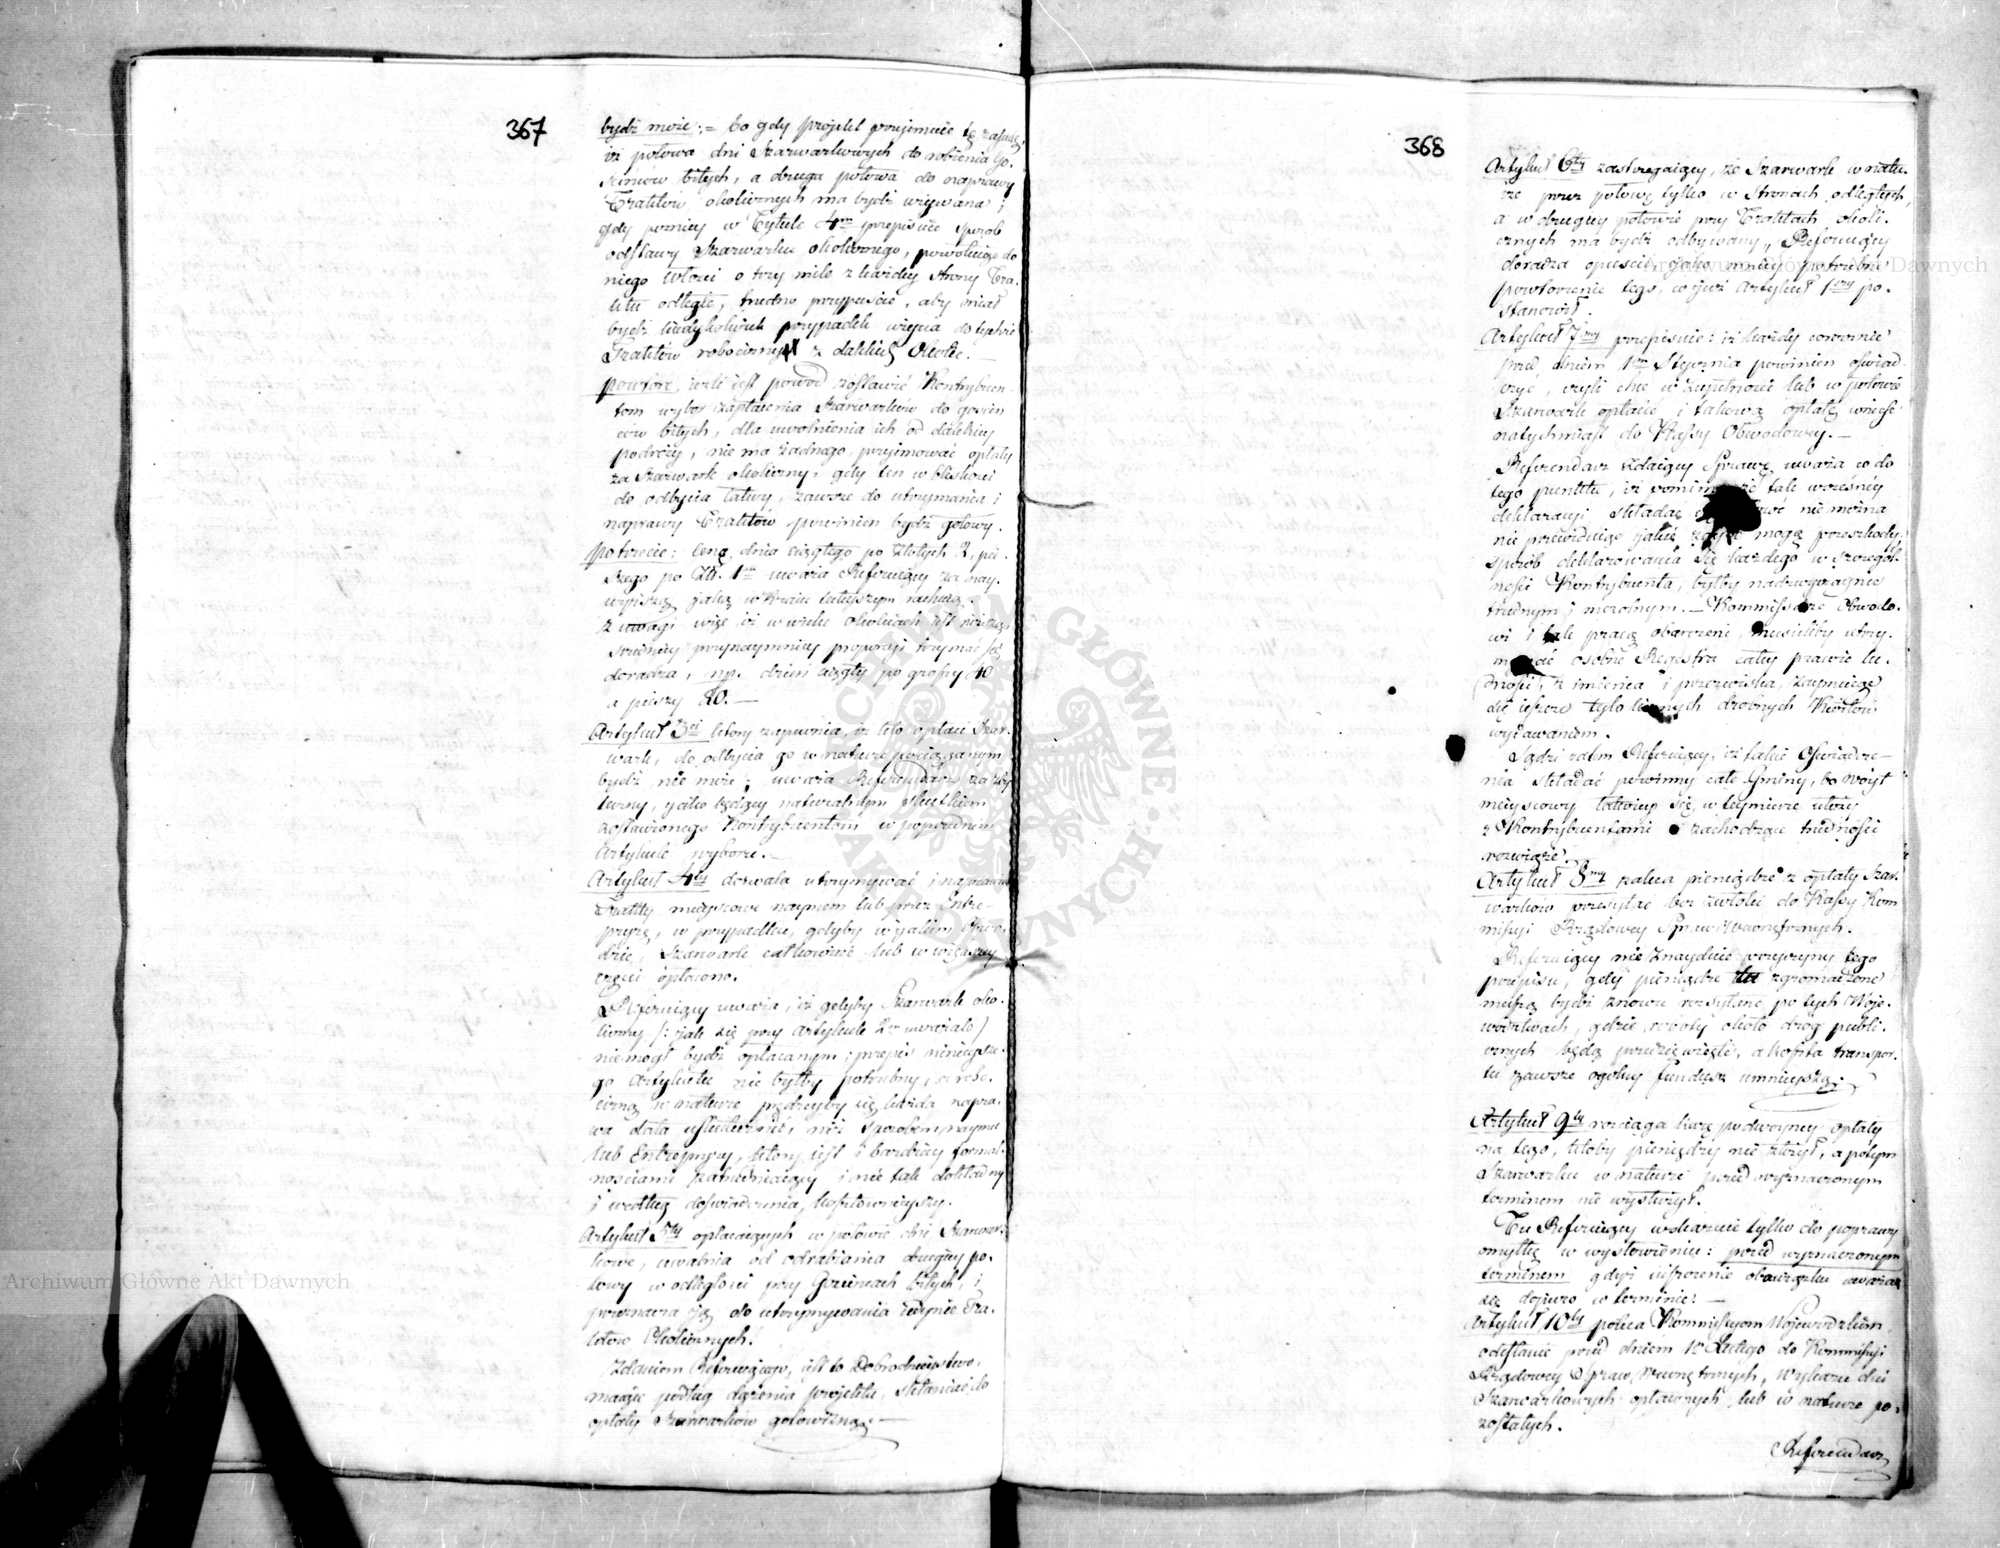 367
bydź może; = bo gdy projekt przyjmuie tę zasadę,
iż połowa dni Szarwarkowych do robienia Go-
ścińców bitych, a druga połowa do naprawy
Traktów okolicznych ma bydź używana;
gdy poniżey w Tytule 4m przepisuie sposób
odstawy Szarwarku okolicznego, powołuiąc do
niego Włości o trzy mile z każdey strony Tra-
ktu odległe, trudno przypuścić, aby miał
bydź kiedykolwiek przypadek użycia do tychże
Traktów robocizny z dalekich Okolic. —
powtóre, ieżeli iest powod zostawić Kontrybuen-
tom wybor zapłacenia Szarwarków do gościn
ców bitych, dla uwolnienia ich od dalekiey
podróży, nie ma żadnego, przyimować opłaty
za Szarwark okoliczny, gdy ten w bliskości
do odbycia łatwy, zawsze do utrzymania i
naprawy Traktów powinien bydź gotowy.
potrzecie: cenę dnia ciągłego po Złotych 2, pie-
szego po Złt. 1m uważa Referuiący za nay-
wyższą, jaką w Kraiu tuteyszym rachuią.
Z uwagi więc iż w wielu okolicach iest niższą,
średniey przynaymniey proporcji trzymać się
doradza, np. dzień ciągły po groszy 40
a pieszy 20. —
Artykuł 3ci który zapewnia, iż kto opłaci Szar-
wark, do odbycia go w naturze pociąganym
bydź nie może; uważa Referendarz za zby
teczny, jako będący naturalnym skutkiem
zostawionego Kontrybuentom w poprzednim
Artykule wyboru. —
Artykuł 4ty dozwala utrzymywać i naprawiać
Trakty mieyscowe naymem lub przez Entre-
pryzę, w przypadku, gdyby w jakim Obwo-
dzie, Szarwark całkowicie lub w większey
części opłacono.
Referuiący uważa, iż gdyby Szarwark oko-
liczny /: jak się przy Artykule 2m uważało /
niemogł bydź opłacanym; przepis ninieysze-
go Artykułu nie byłby potrzebny, a robo-
cizną w naturze prędzeyby się każda napra-
wa dała uskutecznić, niż sposobem naymu
lub Entrepryzy, który iest i bardziey formal-
nościami zatrudniaiący i nie tak dokładny
i według doświadczenia, kosztownieyszy.
Artykuł 5ty opłacaiących w połowie dni Szarwar-
kowe, uwalnia od odrabiania drugiey po-
łowy w odległości przy Gościńcach bitych, i
przeznacza ią do utrzymywania iedynie Tra-
któw Okolicznych.
Zdaniem Referuiącego, iest to Dobrodzieystwo,
maiące podług dążenia projektu, skłaniać do
opłaty Szarwarków gotowizną. —
368
Artykuł 6ty zastrzegaiący, że Szarwark w natu-
rze przez połowę tylko w Stronach odległych,
a w drugiey połowie przy Traktach okoli-
cznych ma bydź odbywany, Referuiący
doradza opuścić, jako mniey potrzebne
powtórzenie tego, co już Artykuł 1szy po-
stanowił.
Artykuł 7my przepisuie: iż każdy corocznie
przed dniem 1m Stycznia powinien oświad-
czyć, czyli chce w zupełności lub w połowie
Szarwark opłacić, i takową opłatę wnieść
natychmiast do Kassy Obwodowey. —
Referendarz zdaiący Sprawę uważa co do
tego punktu, iż pominąwszy że tak wcześniey
deklaracyi składać nie można
nie przewiduiąc jakie zayść mogą przeszkody,
sposób deklarowania się każdego w szczegól-
ności Kontrybuenta, byłby nadzwyczaynie
trudnym i mozolnym. — Kommissarze Obwodo-
wi i tak pracą obarczeni, musieliby utrzy-
mywać osobne Registra całey prawie lu-
dności, z imienia i przezwiska, zaymuiąc
się ieszcze tylo licznych drobnych Kwitów
wydawaniem.
Sądzi zatem Referuiący, iż takie Oświadcze-
nia składać powinny całe Gminy, bo Woyt
mieyscowy łatwiey się w teymierze ułoży
z Kontrybuentami i zachodzące trudności
rozwiąże.
Artykuł 8my zaleca pieniądze z opłaty Szar-
warków przesyłać bez zwłoki do Kassy Kom
missyi Rządowey Spraw Wewnętrznych.
Referuiący nie znayduie przyczyny tego
przepisu, gdy pieniądze tu zgromadzone
muszą bydź znowu rozsyłane po tych Woje-
wodztwach, gdzie roboty około dróg publi-
cznych będą przedsięwzięte, a koszta transpor-
tu zawsze ogólny fundusz umnieyszą. —
Artykuł 9ty rozciąga karę podwoyney opłaty
na tego, ktoby pieniędzy nie złożył, a potym
Szarwarku w naturze przed wyznaczonym
terminem nie wysłużył.
Tu Referuiący wskazuie tylko do poprawy
omyłkę w wysłowieniu: przed wyznaczonym
terminem gdyż uiszczenie obowiązku uważa
się dopiero w terminie: —
Artykuł 10ty poleca Kommissyom Wojewódzkim,
odesłanie przed dniem 1m Lutego do Kommissyi
Rządowey Spraw Wewnętrznych, Wykazu dni
Szarwarkowych opłaconych, lub w naturze po-
zostałych.
Referendarz
Archiwum Główne Akt Dawnych
Archiwum Główne Akt Dawnych
ARCHIWUM GŁÓWNE · AKT DAWNYCH ·